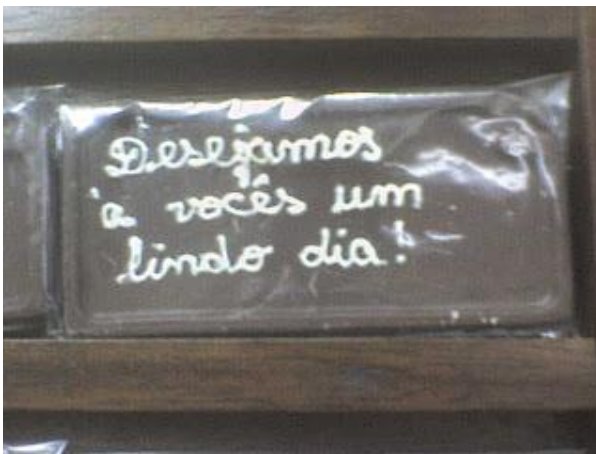 Desejamos
à vocês um
lindo dia!